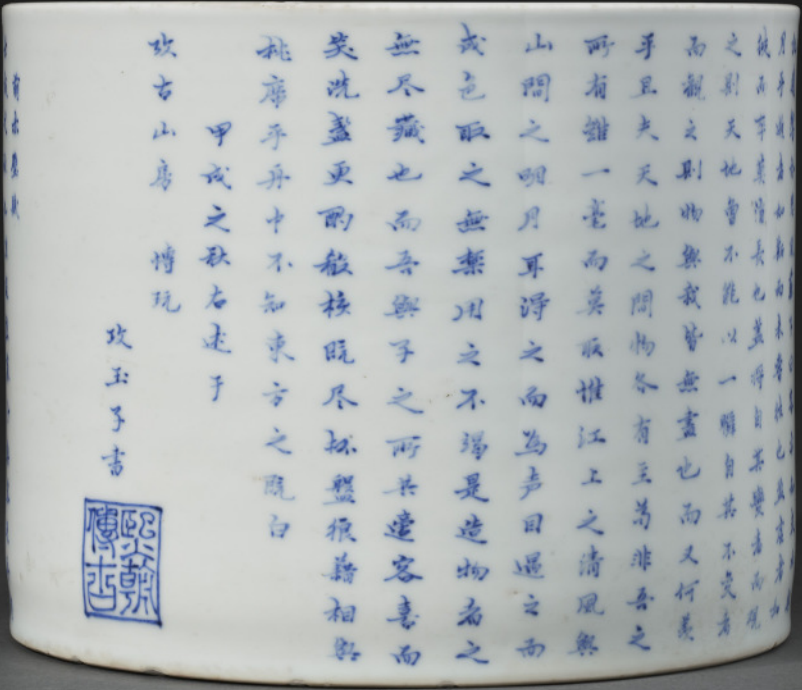 月乎逝者如斯而未嘗往也盈虛者如
彼而卒莫消長也蓋將自其變者而觀
之則天地曾不能以一瞬自其不変者
而觀之則物與我皆無盡也而又何羨
乎且夫天地之間物各有主苟非吾之
所有雖一毫而莫取惟江上之清風與
山間之明月耳得之而為声目遇之而
成色取之無禁用之不竭是造物者之
無尽藏也而吾與子之所共適客喜而
笑洗盞更酌殽核既尽杯盤狼藉相與
枕席乎舟中不知東方之既白
甲戌之秋右述于
攷古山房 博玩
攷玉子書
熙朝
傳古
前赤壁賦